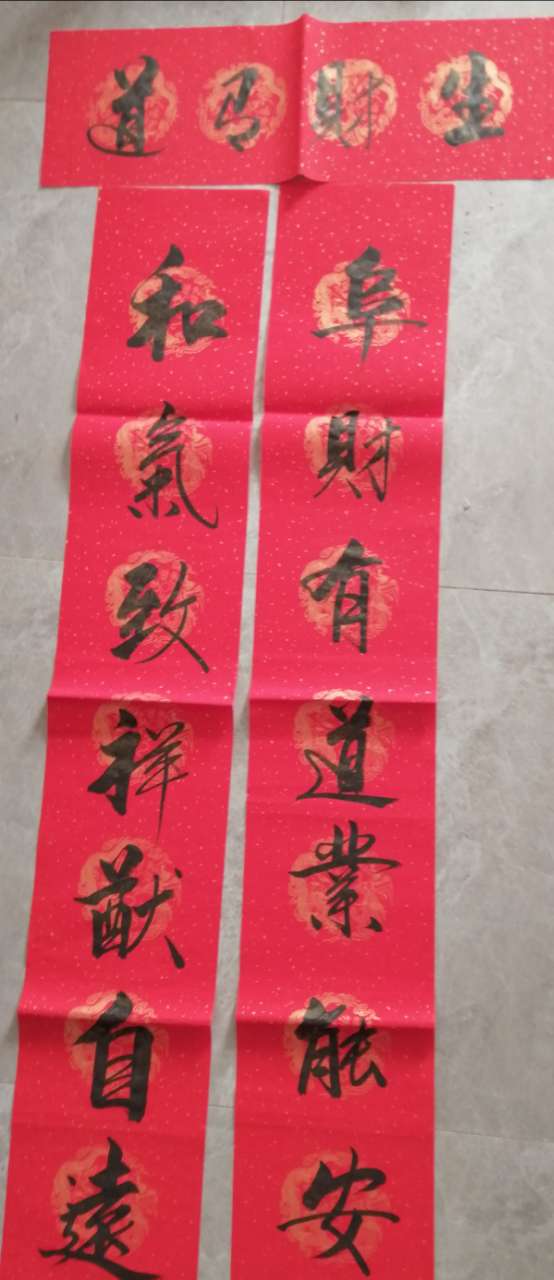 生財有道
阜財有道業能安
和氣致祥猷自遠